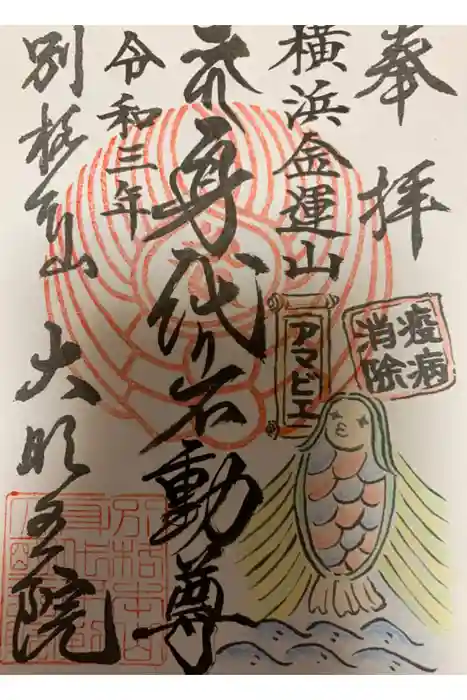 奉拝
横浜金運山
疫病
消除
アマビエ
身代り不動尊
令和三年
別格本山 大明王院